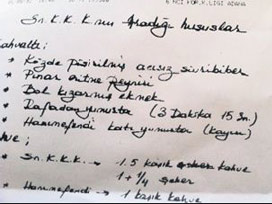 6 NCI KOR.K.LIGI ADANA
Sn. K.K.K.nın Aradığı hususlar
Kahvaltı:
* Közde pişirilmiş acısız sivribiber
* Pınar peyniri
* Bol kızarmış ekmek
* Rafadan yumurta (3 Dakika 15 Sn.)
* Hanımefendi katı yumurta (Kayısı)
Kahve;
* Sn. K.K.K. → 1.5 kaşık kahve
1 + 1/4 şeker
* Hanımefendi → 1 kaşık kahve